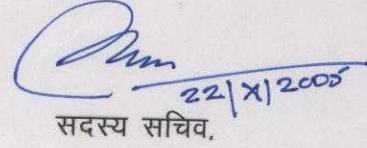 22|X|2005
सदस्य सचिव,